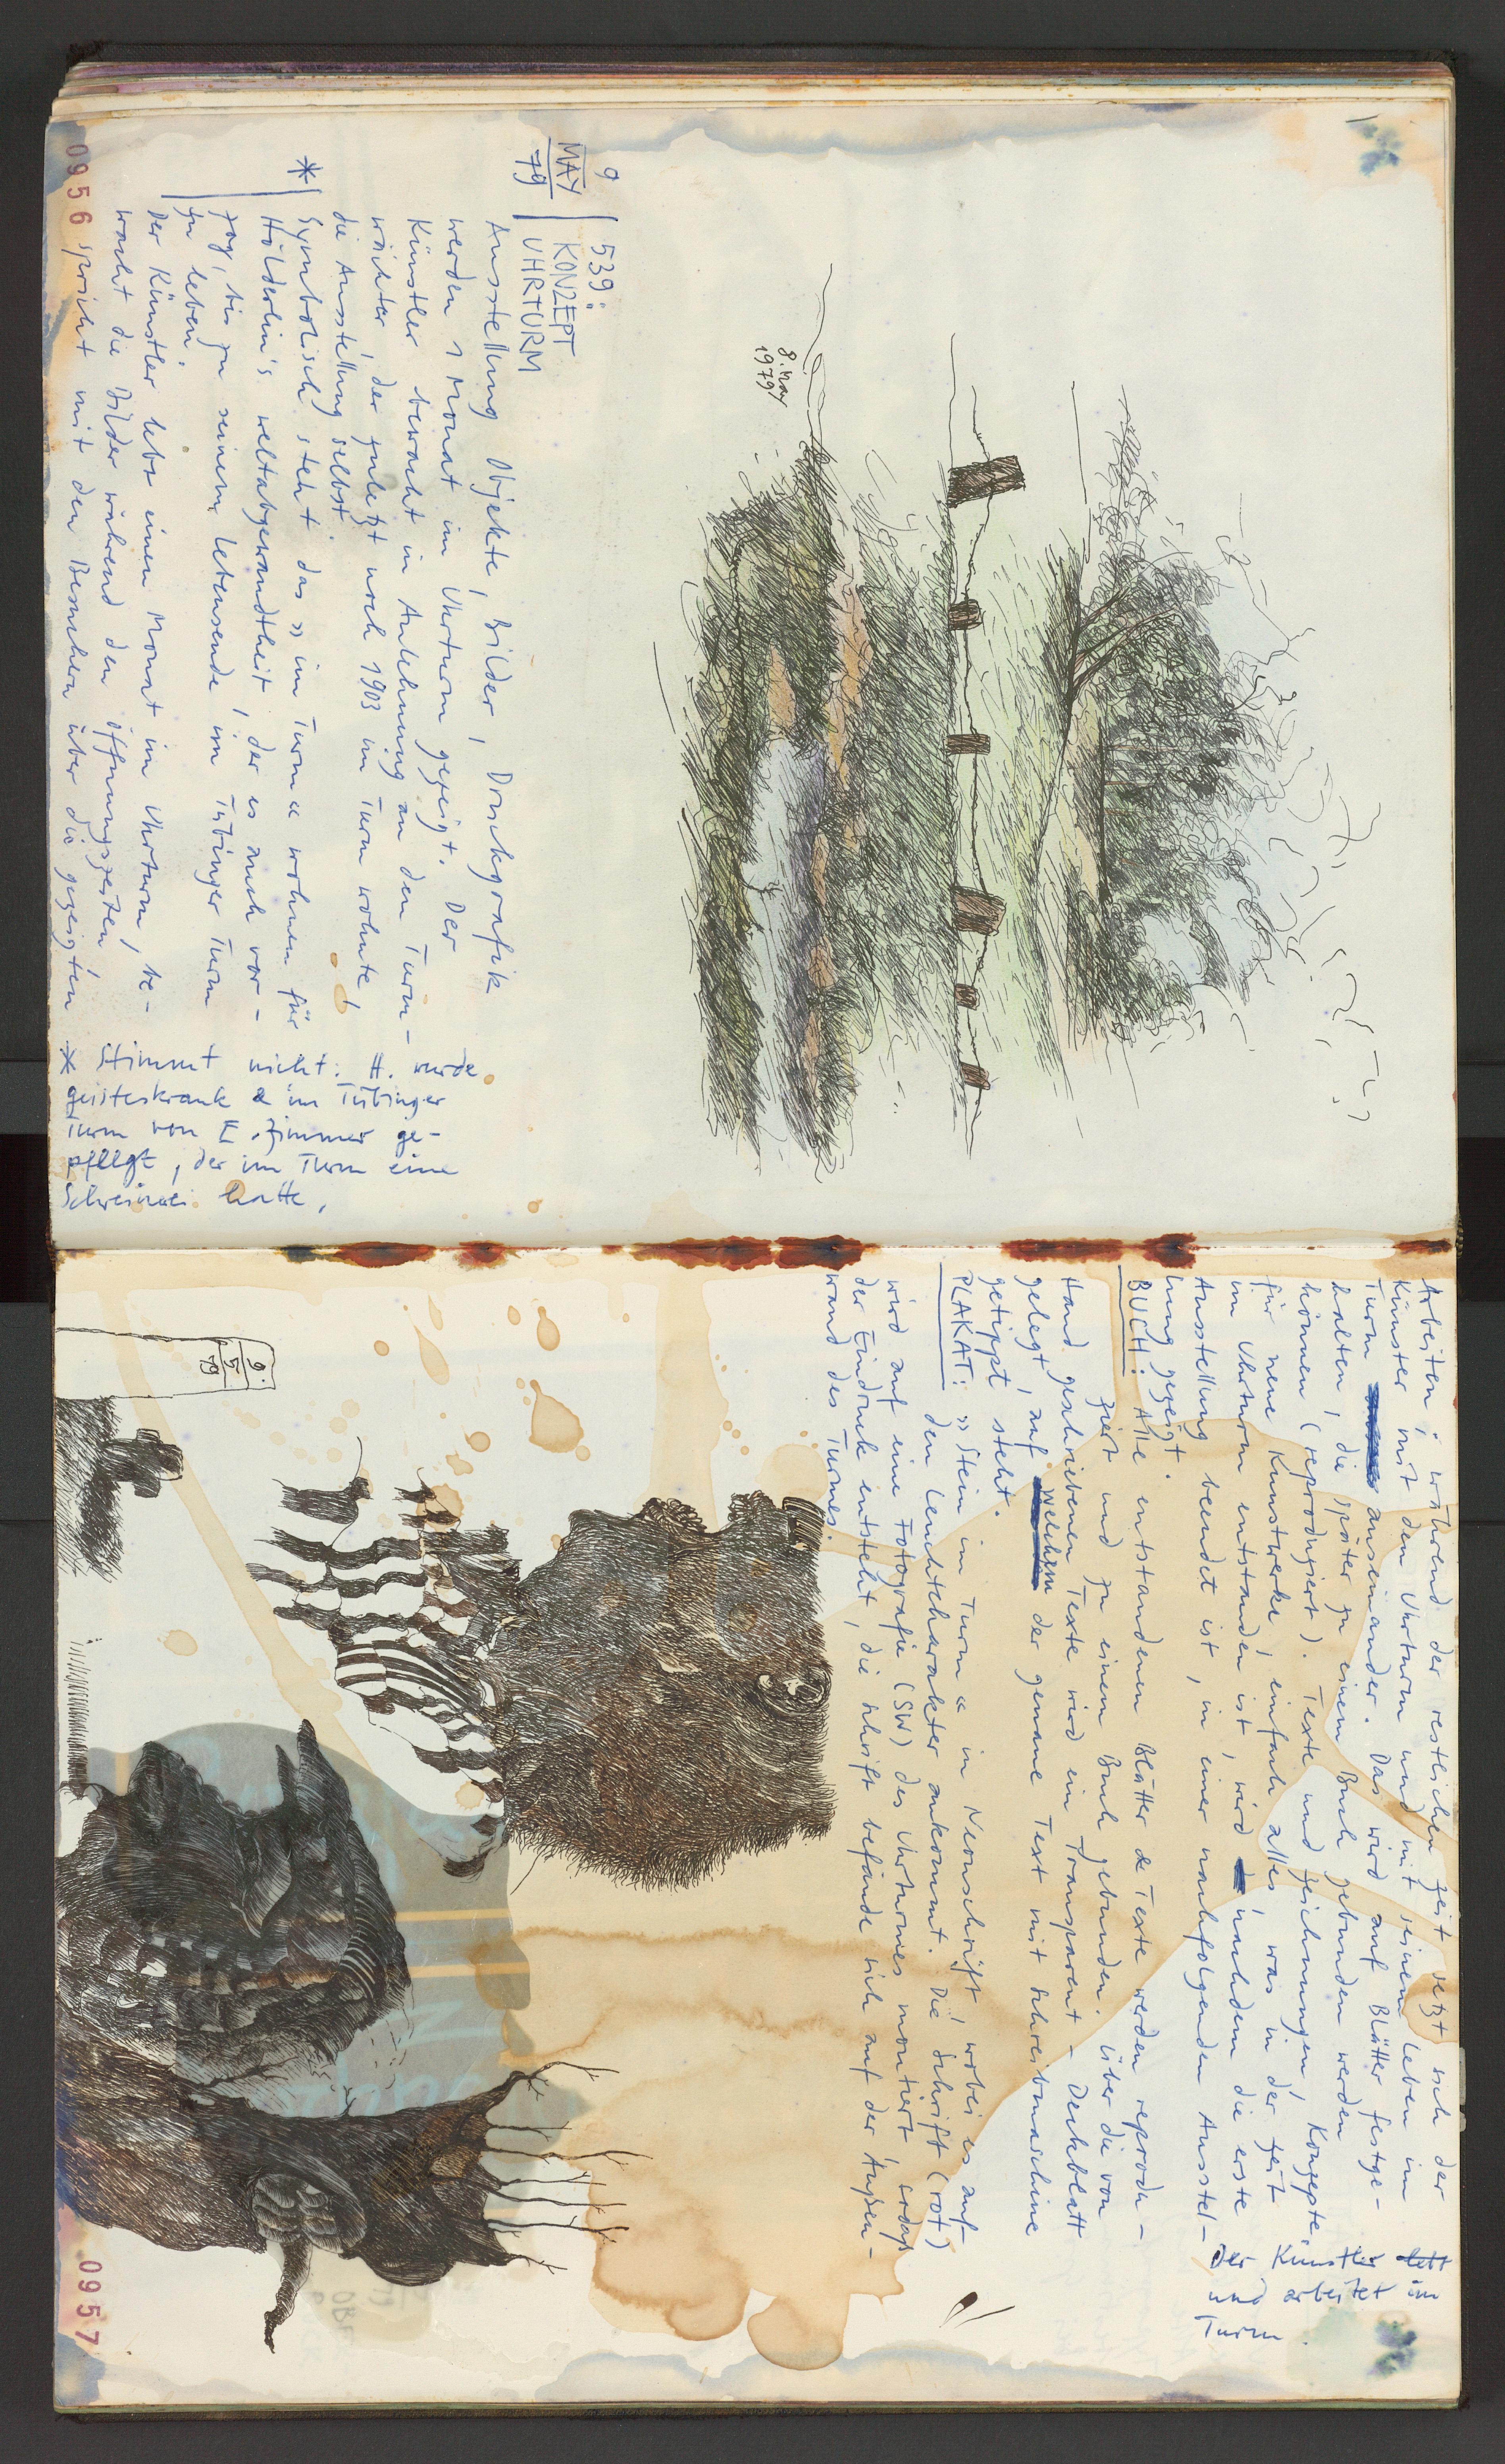 8. May
1979
9
MAY
79
539:
KONZEPT
UHRTURM
Ausstellung Objekte, Bilder, Druckgrafik
werden 1 Monat im Uhrturm gezeigt. Der
Künstler bewacht in Anlehnung an den Turm-
wächter, der zuletzt noch 1903 im Turm wohnte,
die Ausstellung selbst.
* Symbolisch steht das »im Turm« wohnen für
Hölderlin's weltabgewandtheit, der es auch vor-
zog, bis zu seinem Lebensende im Tübinger Turm
zu leben.
Der Künstler lebt einen Monat im Uhrturm, be-
wacht die Bilder während den öffnungszeiten,
0956 spricht mit den Besuchern über die gezeigten
* Stimmt nicht: H. wurde
geisteskrank & im Tübinger
Turm von E. Zimmer ge-
pflegt, der im Turm eine
Schreinerei hatte.
Arbeiten; während der restlichen Zeit setzt sich der
Künster mit dem Uhrturm und mit seinem Leben im
Turm auseinander. Das wird auf Blätter festge-
halten, die später zu einem Buch gebunden werden
können (reproduziert). Texte und Zeichnungen, Konzepte
für neue Kunstwerke, einfach alles, was in der Zeit
im Uhrturm entstanden ist, wird nachdem die erste
Ausstellung beendet ist, in einer nachfolgenden Ausstel-
lung gezeigt.
Der Künstler lebt
und arbeitet im
Turm.
BUCH: Alle entstandenen Blätter & Texte werden reprodu-
ziert und zu einem Buch gebunden. Über die von
Hand geschriebenen Texte wird ein Transparent-Deckblatt
gelegt, auf welchem der genaue Text mit Schreibmaschine
getippt steht.
PLAKAT: »Stein im Turm« in Neonschrift, wobei es auf
den Leuchtcharakter ankommt. Die Schrift (rot)
wird auf eine Fotografie (SW) des Uhrturmes montiert, sodaß
der Eindruck entsteht, die Schrift befände sich auf der Außen-
wand des Turmes.
9.
5
79
0957